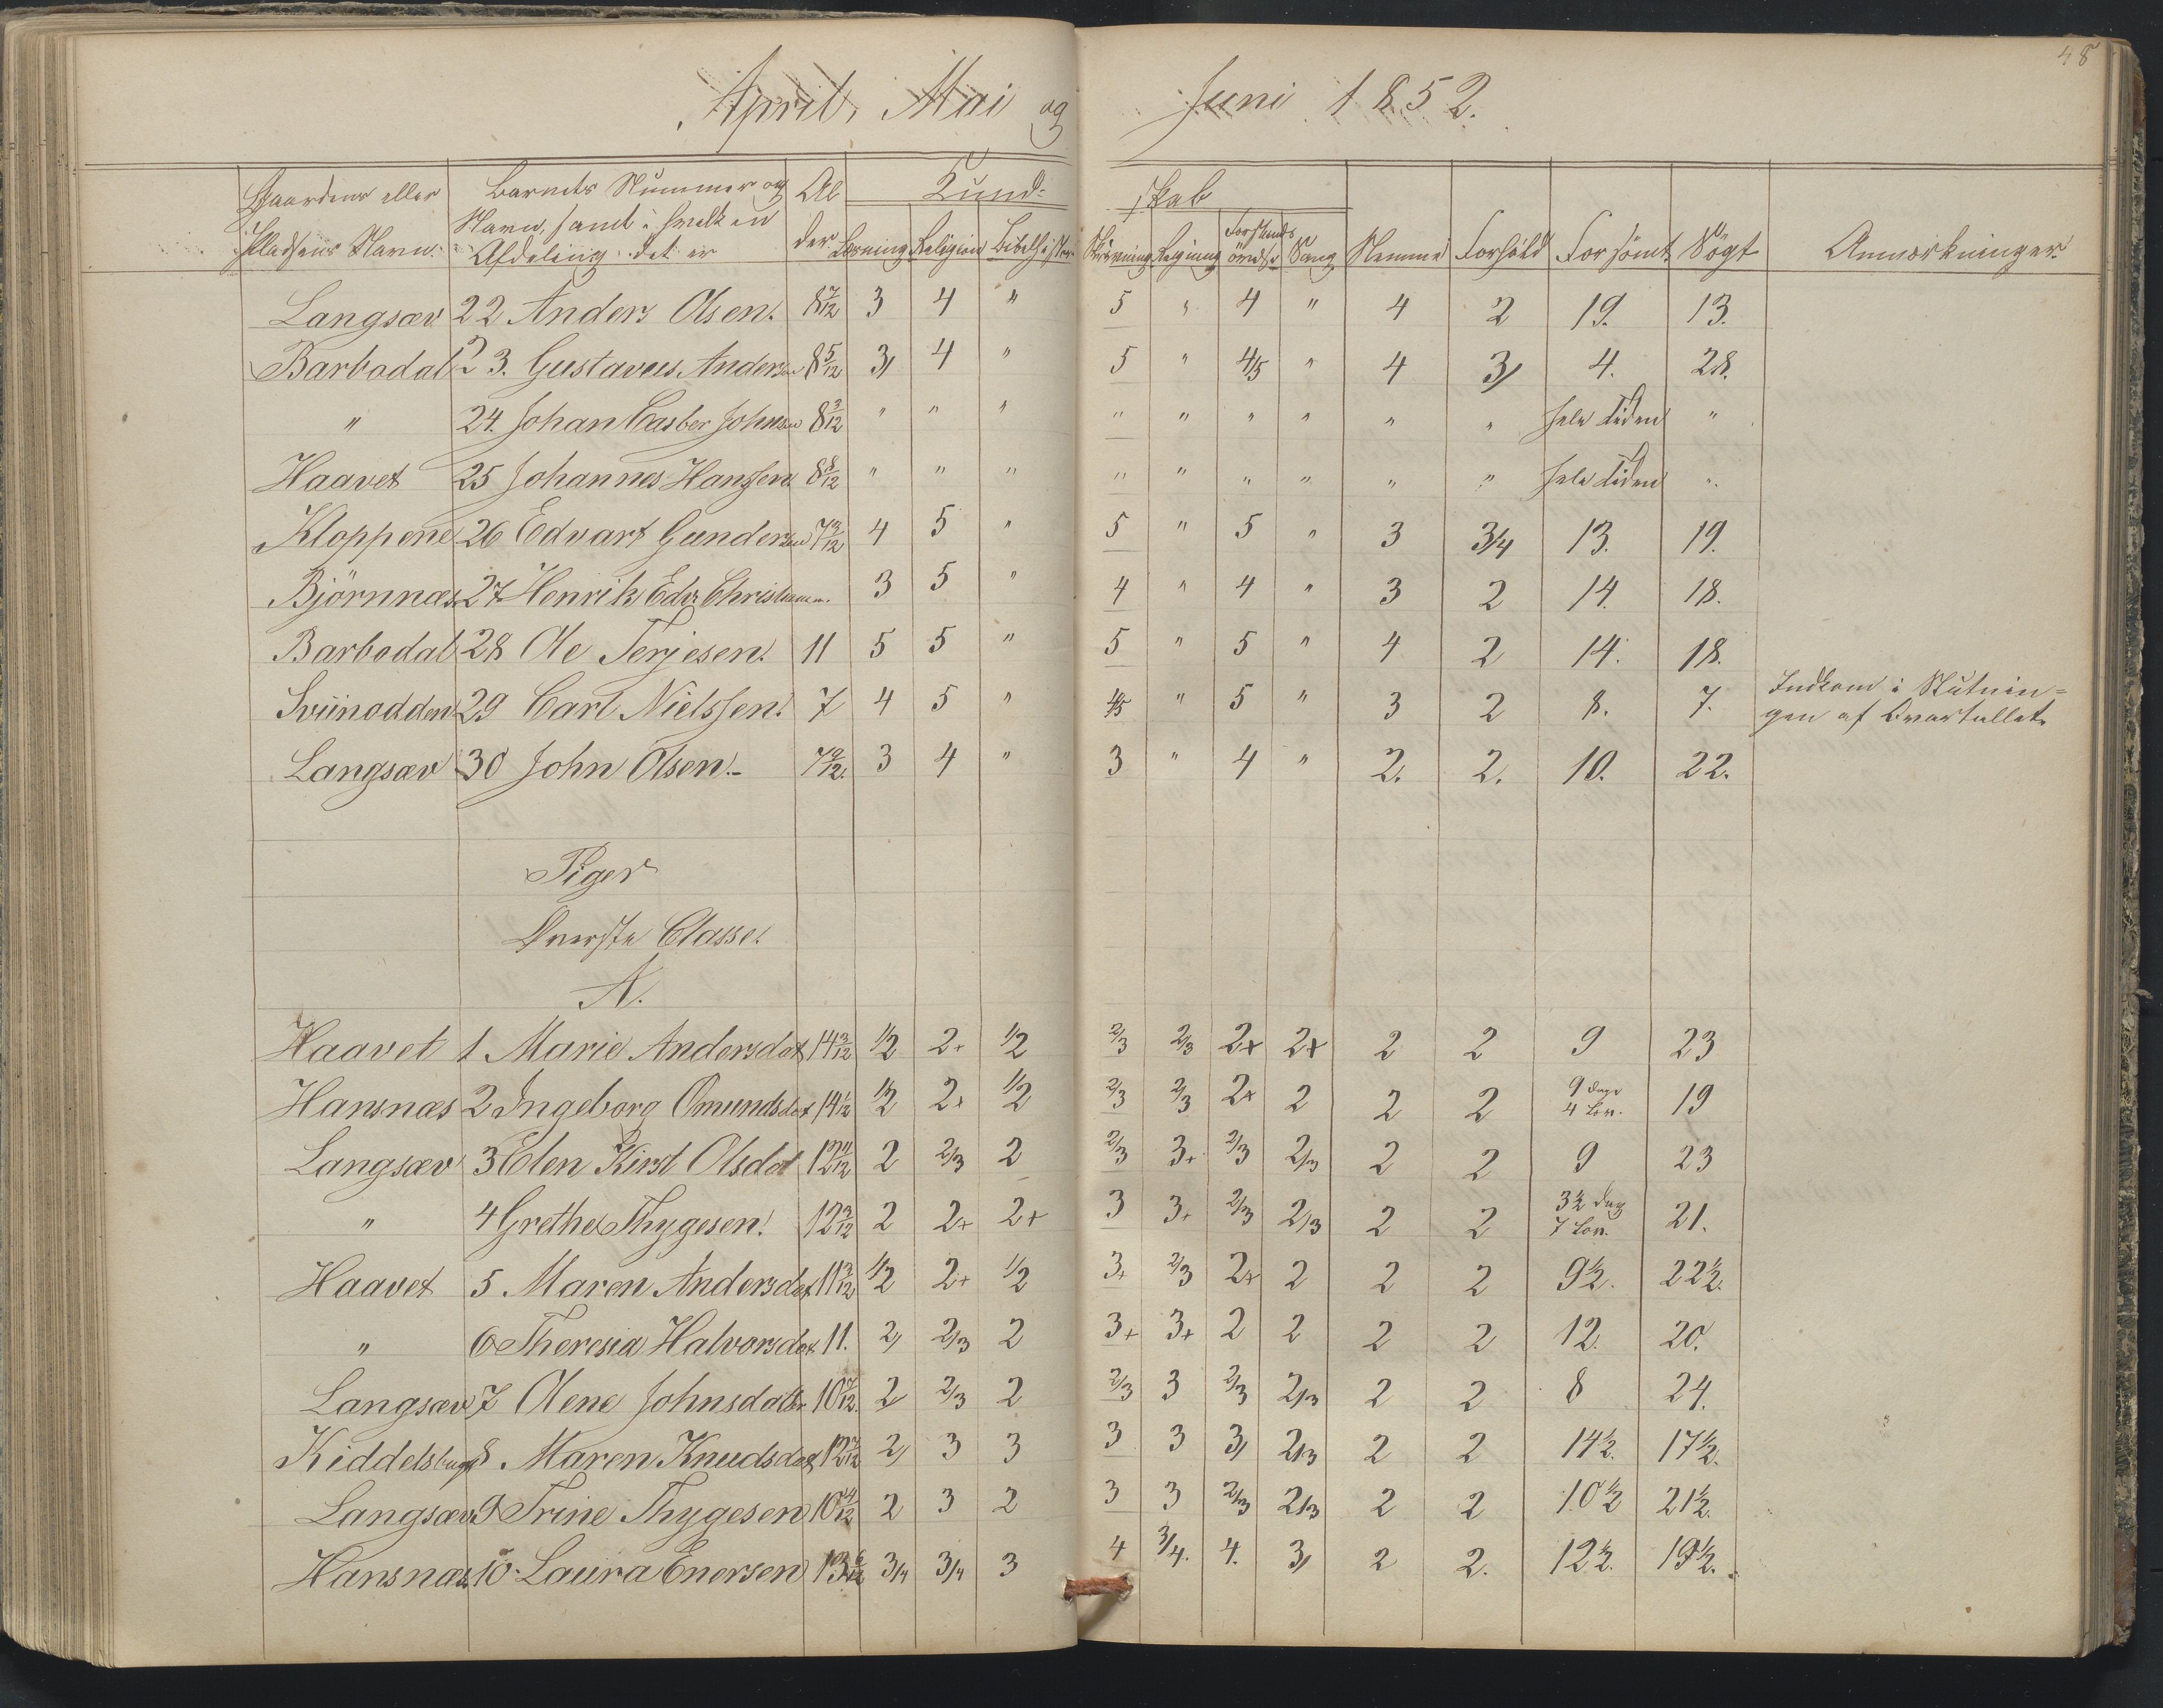 48
April, Mai og Juni 1852.
Gaardens eller Pladsens Navn. Barnets Nummer og Navn, samt i hvilken Afdeling det er Alder. Kundskab Nemme Forhold Forsömt Sögt Anmærkninger.
Læsning Religion Bibelhistor. Skrivning Regning Forstandsövelse Sang
Langsæv 22 Anders Olsen. 8 7/12 3 4 " 5 " 4 " 4 2 19. 13.
Barbodal 23. Gustaveus Andersen 8 5/12 3/ 4 " 5 " 4/5 " 4 3/ 4. 28.
" 24. Johan Casber Johnsen 8 3/12 " " " " " " " " " hele Tiden "
Haavet 25 Johannes Hanssen 8 8/12 " " " " " " " " " hele Tiden "
Kloppene 26 Edvart Gundersen 7 3/12 4 5 " 5 " 5 " 3 3/4 13. 19.
Björnnæs 27 Henrik Edv. Christiansen. 3 5 " 4 " 4 " 3 2 14. 18.
Barbodal 28 Ole Terjesen. 11 5 5 " 5 " 5 " 4 2 14. 18.
Sviinodden 29 Carl Nielssen. 7 4 5 " 4/5 " 5 " 3 2 8. 7. Indkom i Slutnin=
gen af Qvartallet.
Langsæv 30 John Olsen. 7 9/12. 3 4 " 3 " 4 " 2. 2. 10. 22.
Piger
Överste Classe.
A.
Haavet 1 Marie Andersdot 14 3/12 1/2 2+ 1/2 2/3 2/3 2+ 2+ 2 2 9 23
Hansnæs 2 Ingeborg Omundsdot 14 1/12 1/2 2+ 1/2 2/3 2/3 2+ 2 2 2 9 Dage 4 Lov. 19
Langsæv 3 Elen Kirst Olsdot 12 4/12 2 2/3 2 2/3 3+ 2/3 2/3 2 2 9 23
" 4 Grethe Thygesen. 12 3/12 2 2+ 2+ 3 3+ 2/3 2/3 2 2 3 1/2 Dag 7 Lov. 21.
Haavet 5 Maren Andersdot 11 3/12 1/2 2+ 1/2 3+ 2/3 2+ 2 2 2 9 1/2. 22 1/2.
" 6 Theresia Halvorsdot 11. 2/ 2/3 2 3+ 3+ 2 2 2 2 12. 20.
Langsæv 7 Olene Johnsdatter 10 7/12. 2/ 2/3 2 2/3 3 2/3 2/3 2 2 8 24.
Kiddelsbugt 8 Maren Knudsdot 12 7/12 2/ 3 3 3 3 3/ 2/3 2 2 14 1/2. 17 1/2.
Langsæv 9 Trine Thygesen 10 4/12 2 3 2 3 3 2/3 2/3 2 2 10 1/2 21 1/2.
Hansnæs 10 Laura Enersen 13 6/12 3/4 3/4 3 4 3/4. 4. 3/ 2 2. 12 1/2. 19 1/2.